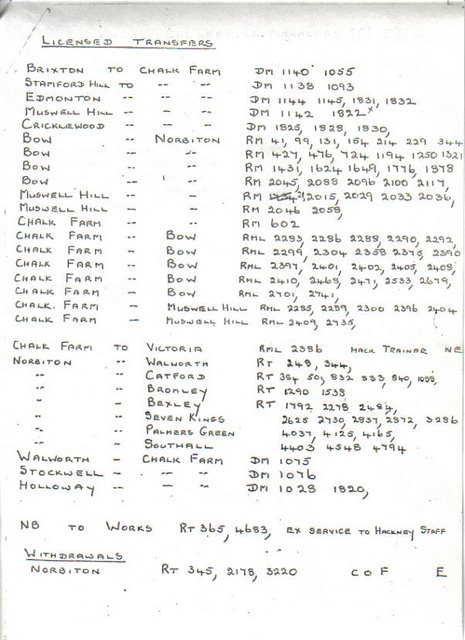 LICENSED TRANSFERS
BRIXTON TO CHALK FARM DM 1140 1055
STAMFORD HILL TO -- -- DM 1138 1093
EDMONTON -- -- -- DM 1144 1145, 1831, 1832
MUSWELL HILL -- -- -- DM 1142 1822x
CRICKLEWOOD -- -- -- DM 1825, 1828, 1830,
BOW -- NORBITON RM 41, 99, 131, 154 214 229 344
BOW -- -- RM 427, 476, 724 1194 1250 1321
BOW -- -- RM 1431, 1624 1649, 1776, 1878
BOW -- -- RM 2045, 2088 2096 2100 2117,
MUSWELL HILL -- -- RM 2015, 2029 2033 2036,
MUSWELL HILL -- -- RM 2046 2058,
CHALK FARM -- -- RM 602
CHALK FARM -- BOW RML 2283, 2286 2288, 2290, 2292,
CHALK FARM -- BOW RML 2299, 2304 2358 2375, 2390
CHALK FARM -- BOW RML 2397, 2401 2402, 2405, 2408,
CHALK FARM -- BOW RML 2410, 2465, 2471, 2533, 2679,
CHALK FARM -- BOW RML 2701, 2741,
CHALK. FARM -- MUSWELL HILL RML 2285, 2289, 2300 2396 2404
CHALK FARM -- MUSWELL HILL RML 2409, 2735,
CHALK FARM TO VICTORIA RML 2386 HACK TRAINAR NE
NORBITON -- WALWORTH RT 248, 344,
" -- CATFORD RT 384 50, 832 833, 840,
" -- BROMLEY RT 1290 1538
" -- BEXLEY RT 1792 2278 2484,
" -- SEVEN KINGS 2625 2730, 2837, 2872, 3286
" -- PALMERS GREEN 4037, 4125, 4165,
" -- SOUTHALL 4403 4548 4794
WALWORTH -- CHALK FARM DM 1075
STOCKWELL -- -- -- DM 1076
HOLLOWAY -- -- -- DM 1028 1820,
NB TO WORKS RT 365, 4683, EX SERVICE TO HACKNEY STAFF
WITHDRAWALS
NORBITON RT 345, 2178, 3220 C O F E